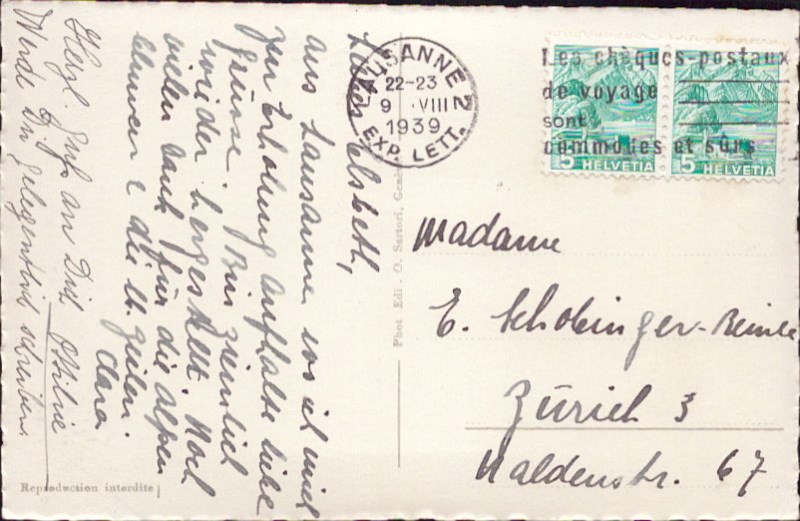 Liebes Elsbeth,
aus Lausanne wo ich mich
zur Erholung aufhalte liebe
Grüsse. Bin ziemlich
wieder hergestellt. Noch
vielen Dank für die Alpen
die lb. Zeilen.
Clara
Herzl. Gruss an Dich Ottilie
Werde Dir gelegentlich schreiben.
LAUSANNE 2
22-23
9 . VIII
1939
EXP. LETT.
Les chèques-postaux
de voyage
sont
commodes et sûrs
5 HELVETIA
5 HELVETIA
Phot Edi . O. Sartori, Genè
Madame
E. Schobinger-
Zürich 3
Haldenstr. 67
Reproduction interdite